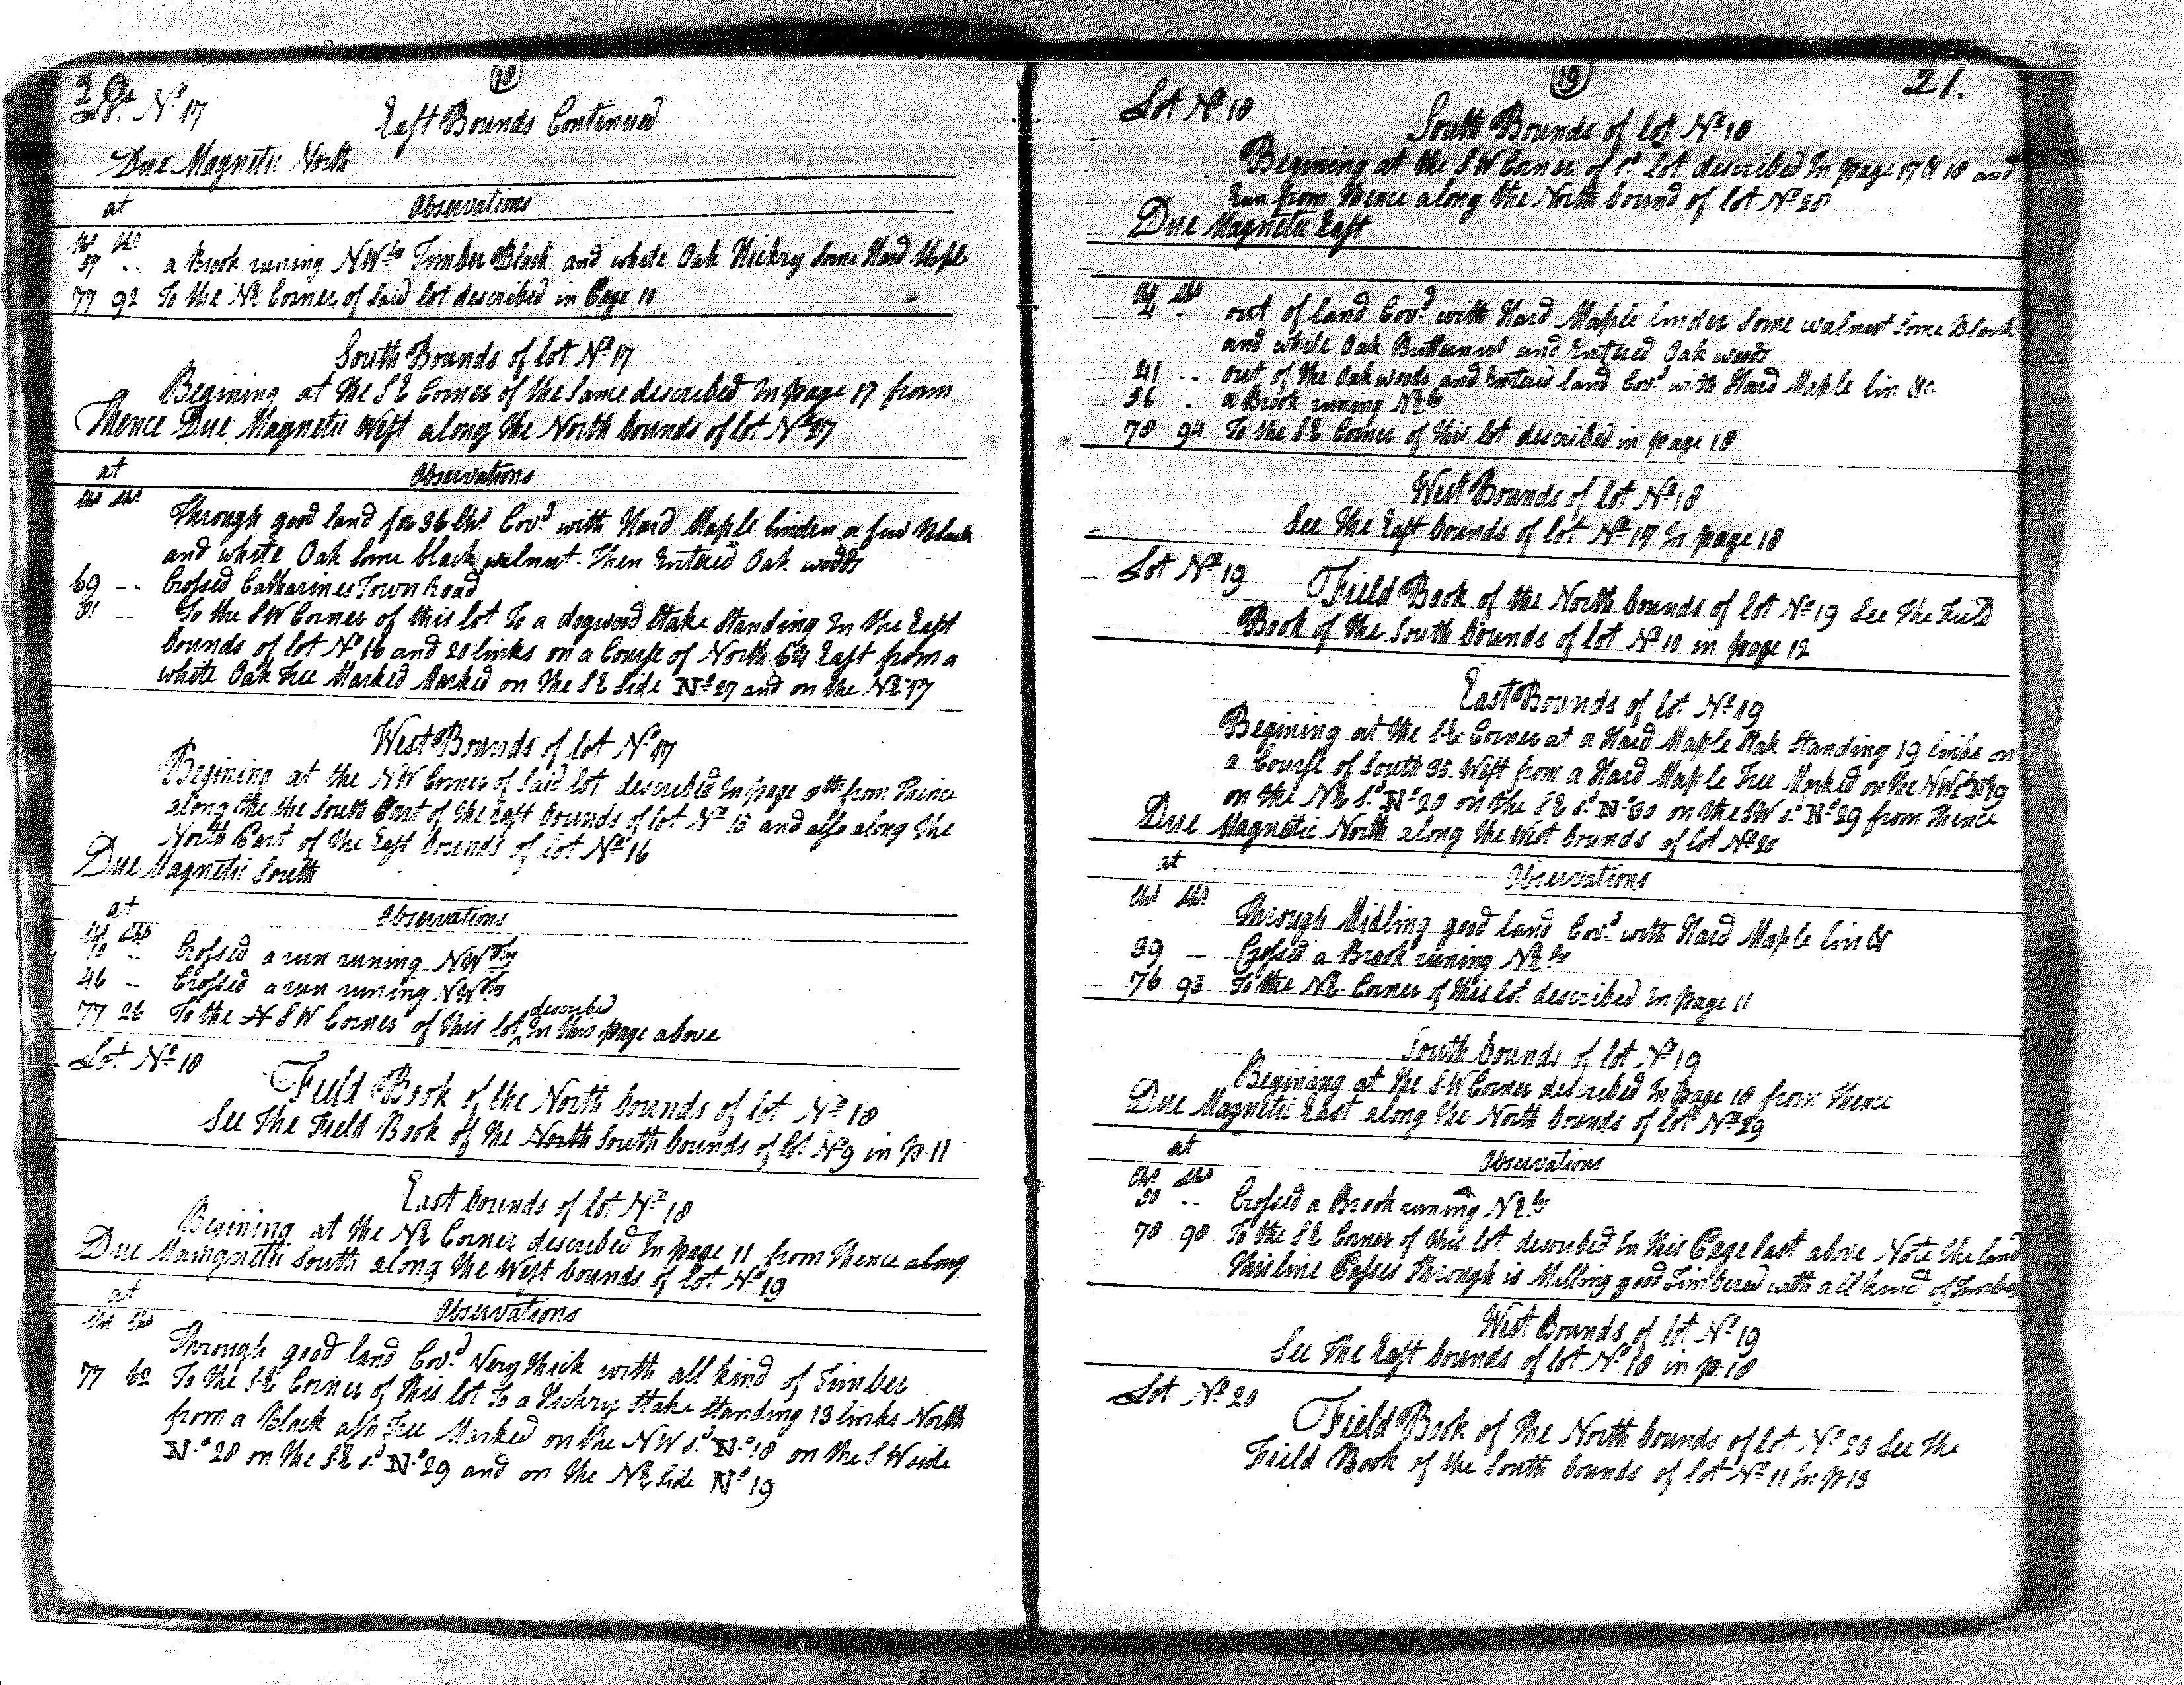 20
(18)
Lot No 17
East Bounds Continued
Due Magnetic North
at Observations
Chs Lks
57 .. a Brook runing NWly Timber Black and white Oak Hickry some Hard Maple
77 92 To the NE Corner of said lot described in Page 10
South Bounds of lot No 17
Begining at the SE Corner of the same described In page 17 from
Thence Due Magnetic West along the North bounds of lot No 27
at Observations
Chs Lks Through good land for 36 Chs Covd with Hard Maple linden a few Black
and white Oak some black walnut. Then Entered Oak woods
69 -- Crossed Catharines Town Road
81 -- To the SW Corner of this lot To a dogwood Stake Standing In the East
bounds of lot No 16 and 20 links on a Course of North 64 East from a
white Oak Tree Marked Marked on the SE Side No 27 and on the NE 17
West Bounds of lot No 17
Begining at the NW Corner of said lot described In page 9th from Thence
along the the South Part of the East bounds of lot No 15 and also along the
North Part of the East bounds of lot No 16
Due Magnetic South
at Observations
Chs Lks
10 .. Crossed a run runing NWly
46 .. Crossed a run runing NWly
77 26 To the N SW Corner of this lot described In this page above
Lot No 18
Field Book of the North bounds of lot No 18
See The Field Book of the North South bounds of lot No 9 in p 11
East bounds of lot No 18
Begining at the NE Corner described In page 11 from Thence along
Due Mamgnetic South along the West bounds of lot No 19
at Observations
Chs Lks
Through good land Covd Very thick with all kind of Timber
77 62 To the SE Corner of this lot To a Hickry Stake Standing 13 links North
from a Black ash Tree Marked on the NW sd No 18 on the SW side
No 28 on the SE sd No 29 and on the NE Side No 19
(19)
21.
Lot No 18
South Bounds of lot No 18
Begining at the SW Corner of sd Lot described In page 17 & 18 and
Run from Thence along the North bound of lot No 28
Due Magnetic East
Chs Lks
4 - out of land Covd with Hard Maple linden some walnut some Black
and white Oak Butternut and Entered Oak woods
41 -- out of the Oak woods and Entered land Covd with Hard Maple lin &c
56 . a Brook runing NEly
78 94 To the SE Corner of this lot described in page 18
West Bounds of lot No 18
See The East bounds of lot No 17 In page 18
Lot No 19
Field Book of the North bounds of lot No 19 See The Field
Book of the South bounds of lot No 10 in page 12
East Bounds of lot No 19
Begining at the SE Corner at a Hard Maple Stak Standing 19 links on
a Course of South 35 West from a Hard Maple Tree Marked on the NW sd No 19
on the NE sd No 20 on the SE sd No 30 on the SW sd No 29 from Thence
Due Magnetic North along the West bounds of lot No 20
at Observations
Chs Lks
Through Midling good land Covd with Hard Maple lin &
39 -- Crossed a Brook runing NEly
76 93 To the NE Corner of this lot described In page 11
South bounds of lot No 19
Begining at the SW Corner described In page 18 from Thence
Due Magnetic East along the North bounds of lot No 29
at Observations
Chs Lks
50 .. Crossed a Brook runing NEly
78 90 To the SE Corner of this lot described In this Page last above Note the land
this line Passes through is Midling good Timbered with all kind of Timber
West Bounds of lot No 19
See The East bounds of lot No 18 in p. 18
Lot No 20
Field Book of the North bounds of lot No 20 See The
Field Book of the South bounds of lot No 11 In p 13